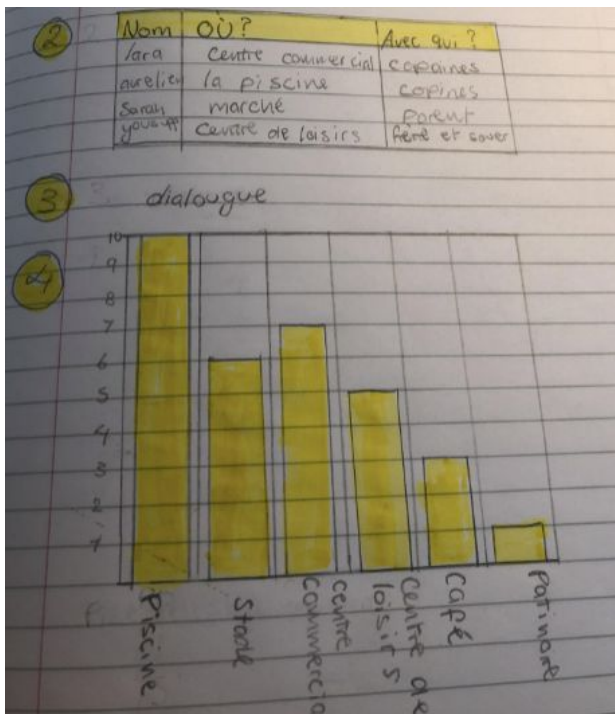 2
Nom OÙ? Avec qui?
lara centre commercial copaines
aurelien la piscine copines
Sarah marché parent
youssef centre de loisirs frère et souer
3 dialougue
4
10
9
8
7
6
5
4
3
2
1
Piscine
Stade
centre
commercia
centre de
loisirs
café
Patinore